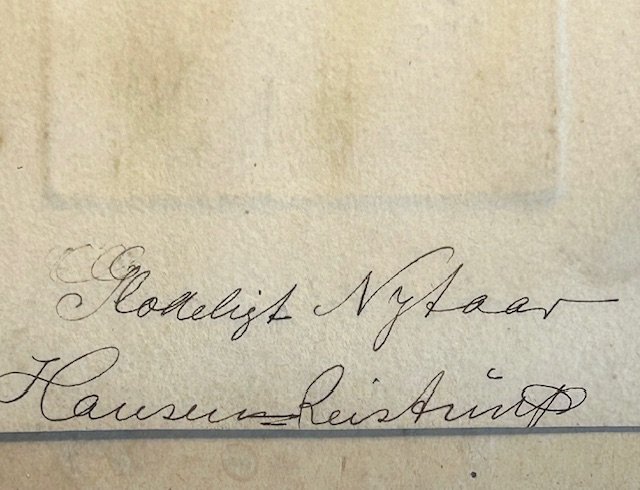 Glædeligt Nytaar
Hansen=Reistrup